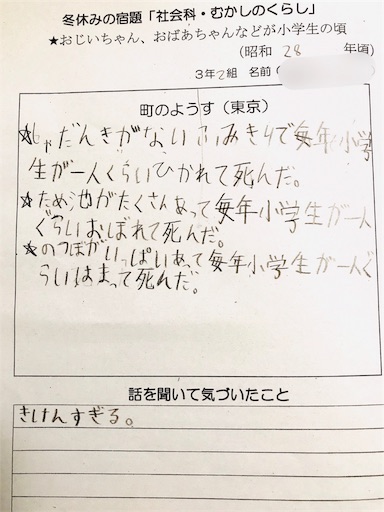 冬休みの宿題「社会科・むかしのくらし」
★おじいちゃん、おばあちゃんなどが小学生の頃
(昭和 28 年頃)
3年2組 名前(
町のようす(東京)
★しゃだんきがないふみきりで毎年小学
生が一人くらいひかれて死んだ。
★ため池がたくさんあって毎年小学生が一人
ぐらいおぼれて死んだ。
★のつぼがいっぱいあって毎年小学生が一人ぐ
らいはまって死んだ。
話を聞いて気づいたこと
きけんすぎる。